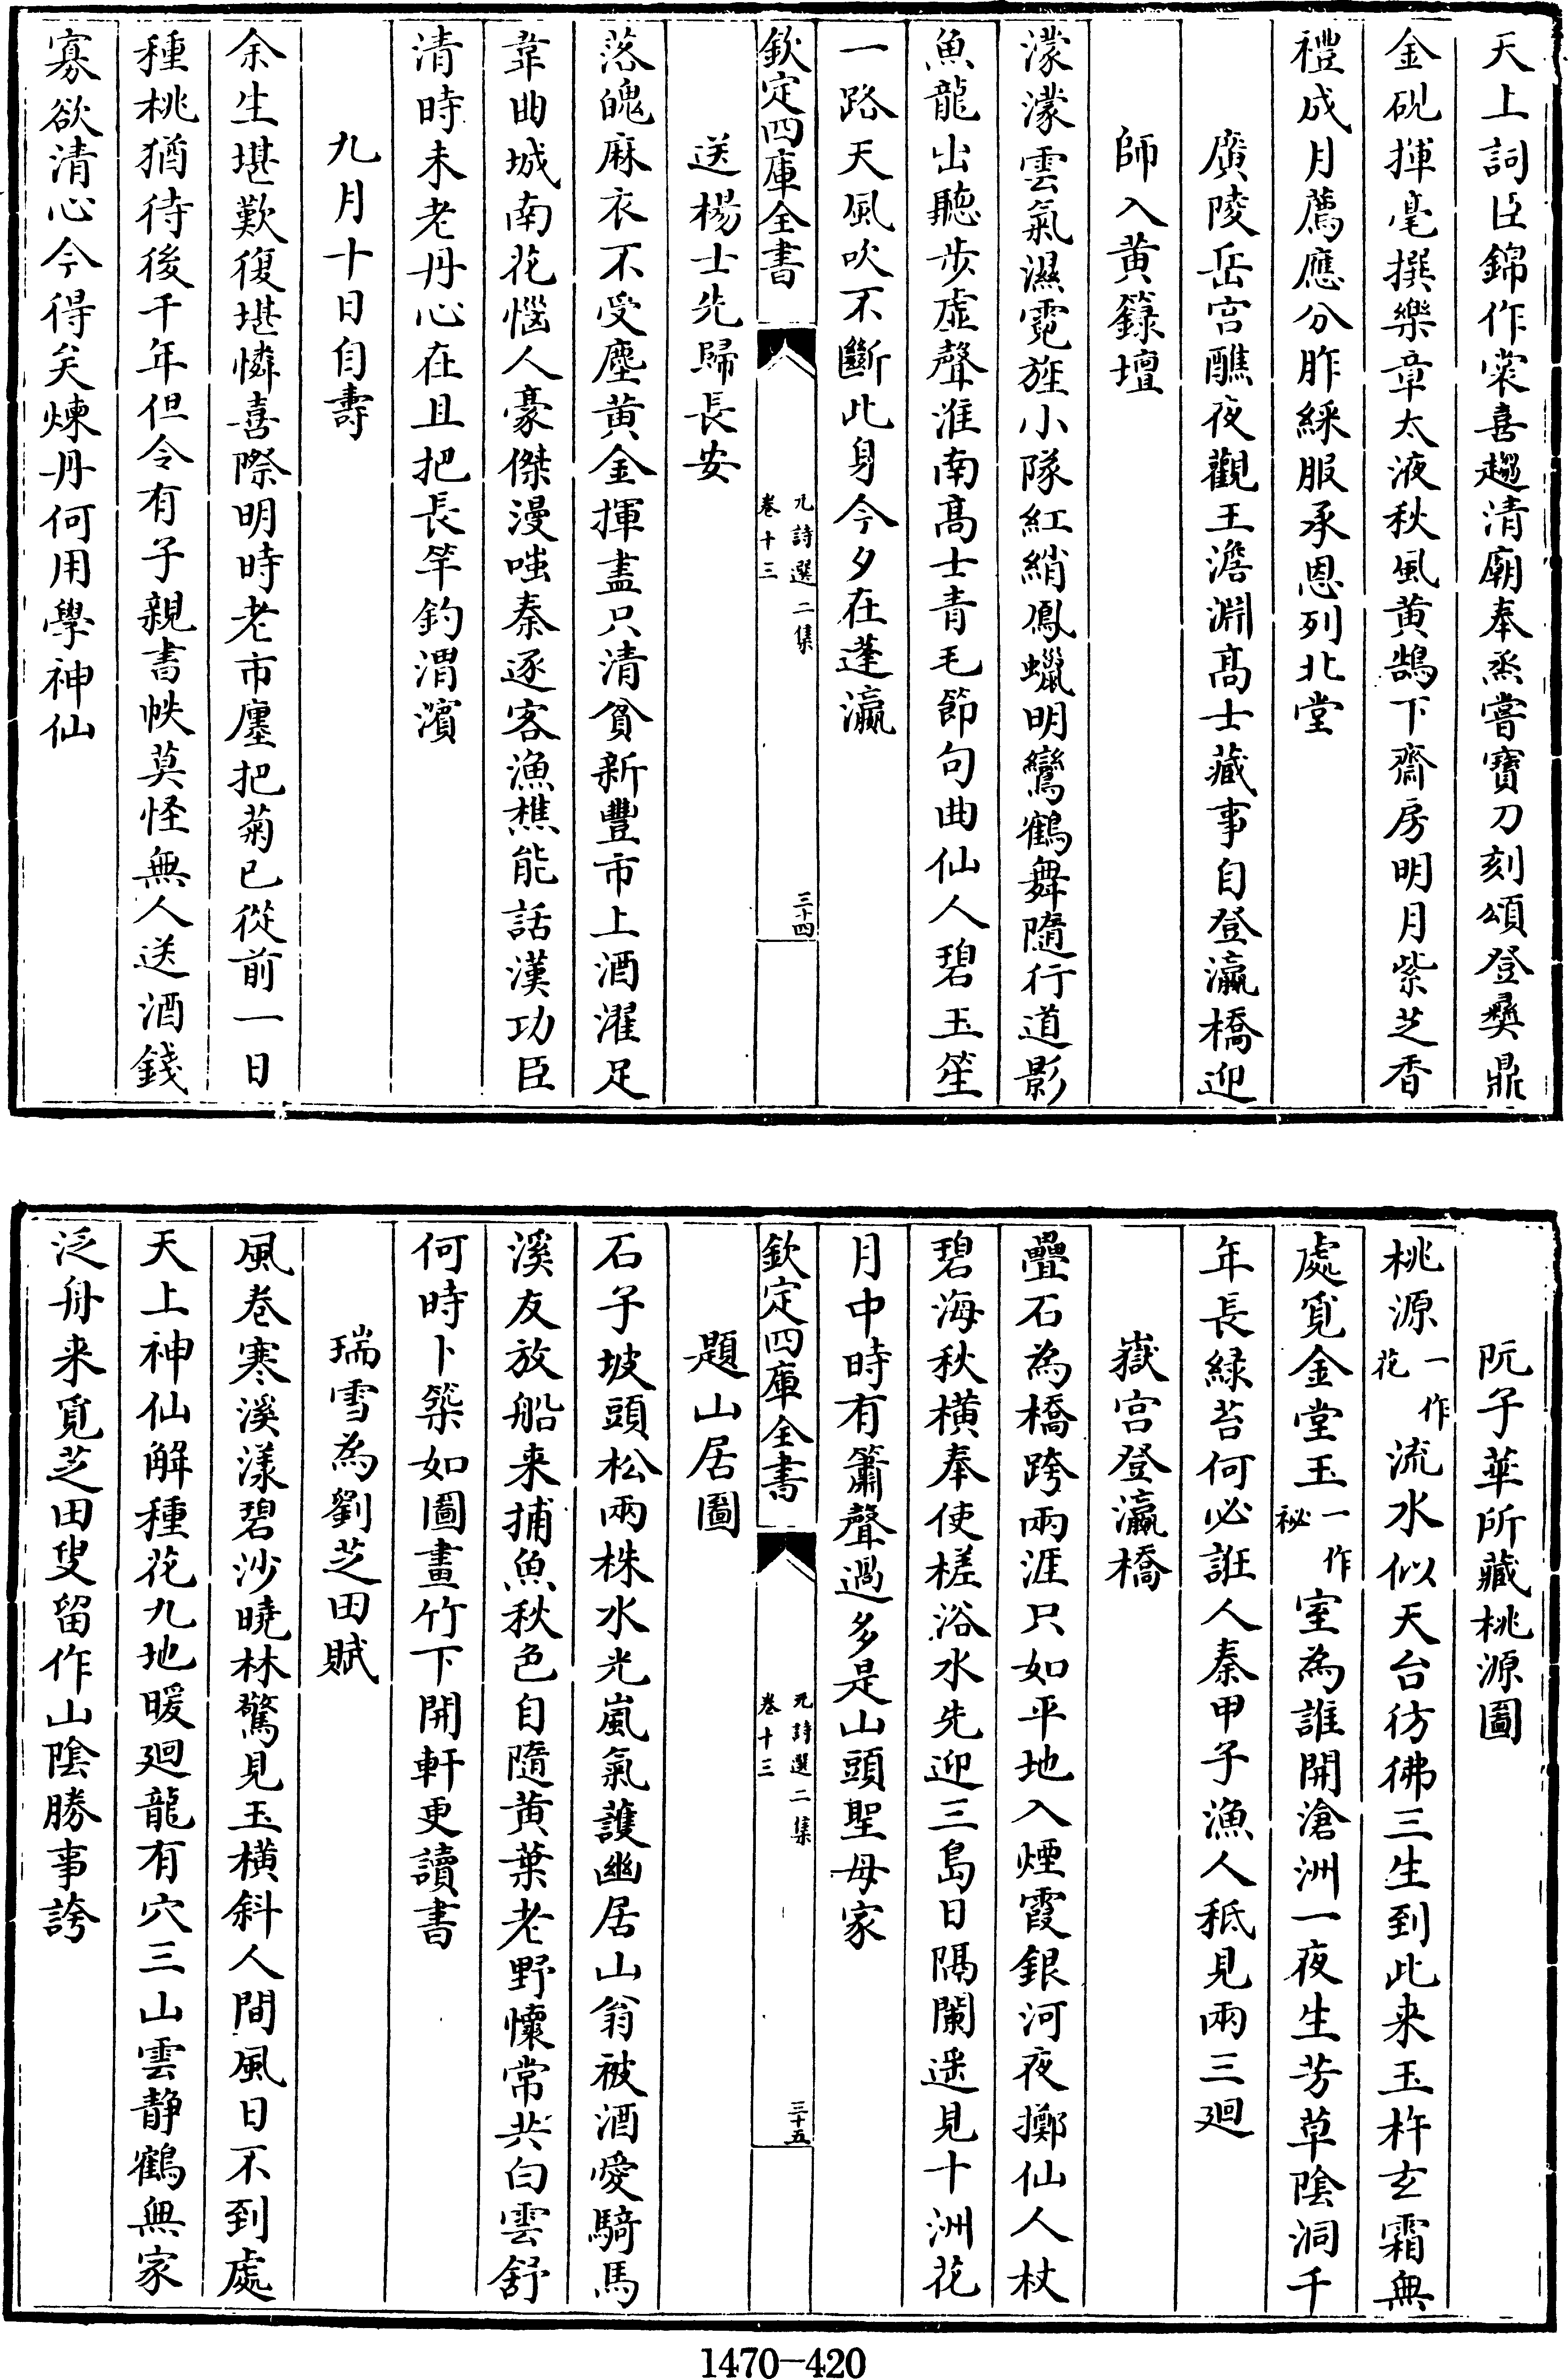 天上詞臣錦作裳喜趨清廟奉烝嘗寶刀刻頌登彝鼎
金硯揮毫撰樂章太液秋風黄鵠下齋房明月紫芝香
禮成月薦應分胙綵服承恩列北堂
廣陵岳宫醮夜觀王澹淵髙士藏事自登瀛橋迎
師入黄籙壇
濛濛雲氣濕霓旌小隊紅綃鳳蠟明鸞鶴舞隨行道影
魚龍出聽步虚聲淮南髙士青毛節句曲仙人碧玉笙
一路天風吹不斷此身今夕在蓬瀛
欽定四庫全書
元詩選二集
卷十三
三十四
送楊士先歸長安
落魄麻衣不受塵黄金揮盡只清貧新豐市上酒濯足
韋曲城南花惱人豪傑漫嗤秦逐客漁樵能話漢功臣
清時未老丹心在且把長竿釣渭濱
九月十日自壽
余生堪歎復堪憐喜際明時老市廛把菊已從前一日
種桃猶待後千年但令有子親書帙莫怪無人送酒錢
寡欲清心今得矣煉丹何用學神仙
阮子華所藏桃源圖
桃源一作花流水似天台彷彿三生到此来玉杵玄霜無
處覓金堂玉一作祕室為誰開滄洲一夜生芳草陰洞千
年長緑苔何必誑人秦甲子漁人秪見兩三廻
嶽宫登瀛橋
疊石為橋跨兩涯只如平地入煙霞銀河夜擲仙人杖
碧海秋横奉使槎浴水先迎三島日隔闌遥見十洲花
月中時有簫聲過多是山頭聖母家
欽定四庫全書
元詩選二集
卷十三
三十五
題山居圖
石子坡頭松兩株水光嵐氣護幽居山翁被酒愛騎馬
溪友放船来捕魚秋色自隨黄葉老野懷常共白雲舒
何時卜築如圖畫竹下開軒更讀書
瑞雪為劉芝田賦
風卷寒溪漾碧沙曉林驚見玉横斜人間風日不到處
天上神仙解種花九地暖廻龍有穴三山雲静鶴無家
泛舟来覓芝田叟留作山陰勝事誇
1470—420